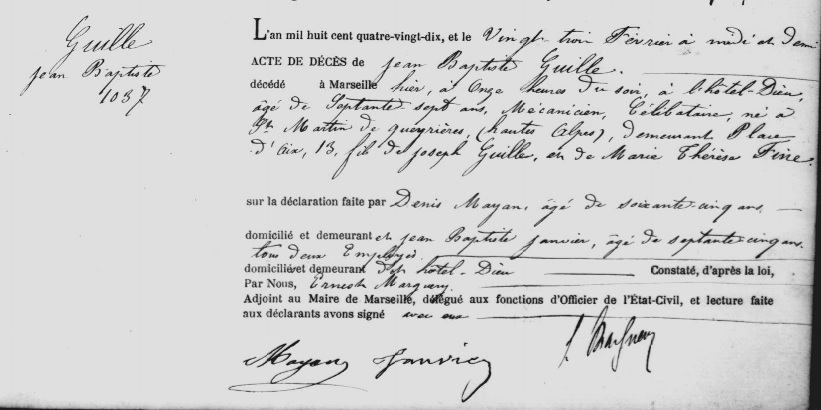 Guille
jean Baptiste
1037
L'an mil huit cent quatre-vingt-dix, et le Vingt trois Février à midi et demi
ACTE DE DÉCÈS de jean Baptiste Guille.
décédé à Marseille hier, à Onze heures du soir, à l'hôtel-Dieu,
âgé de Septante sept ans, Mécanicien, Célibataire, né à
St Martin de queyrières, (hautes Alpes), demeurant Place
d'Aix, 13, fils de joseph Guille, et de Marie Thérèse Fine.
sur la déclaration faite par Denis Mayan, âgé de soixante cinq ans.
domicilié et demeurant et jean Baptiste janvier, âgé de septante cinq ans.
tous deux Employés
domicilié et demeurant à l'hôtel-Dieu Constaté, d'après la loi,
Par Nous, Ernest Marguery
Adjoint au Maire de Marseille, délégué aux fonctions d'Officier de l'État-Civil, et lecture faite
aux déclarants avons signé avec eux
Mayan Janvier